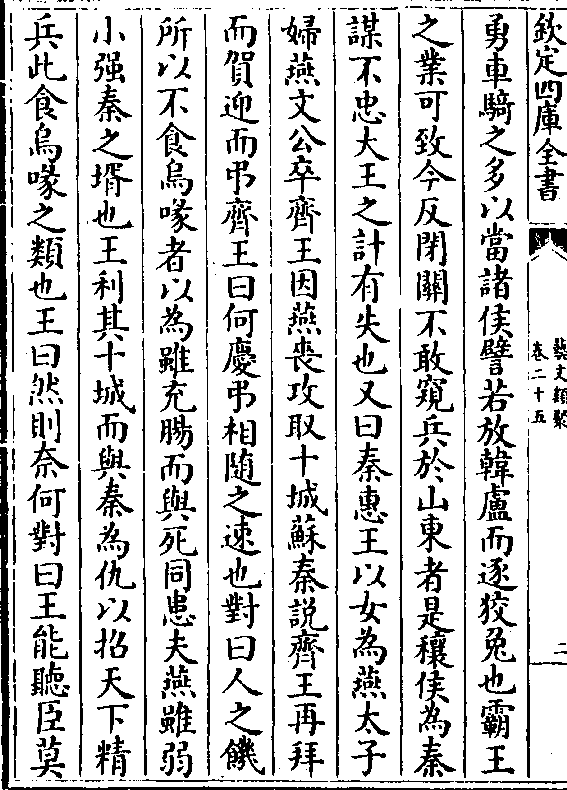 欽定四庫全書
藝文類聚
卷二十五
二
勇車騎之多以當諸侯譬若放韓盧而逐狡兔也霸王
之業可致今反閉關不敢窺兵於山東者是穰侯為秦
謀不忠大王之計有失也又曰秦惠王以女為燕太子
婦燕文公卒齊王因燕喪攻取十城蘇秦説齊王再拜
而賀迎而弔齊王曰何慶弔相隨之速也對曰人之饑
所以不食烏喙者以為雖充腸而與死同患夫燕雖弱
小强秦之壻也王利其十城而與秦為仇以招天下精
兵此食烏喙之類也王曰然則奈何對曰王能聽臣莫